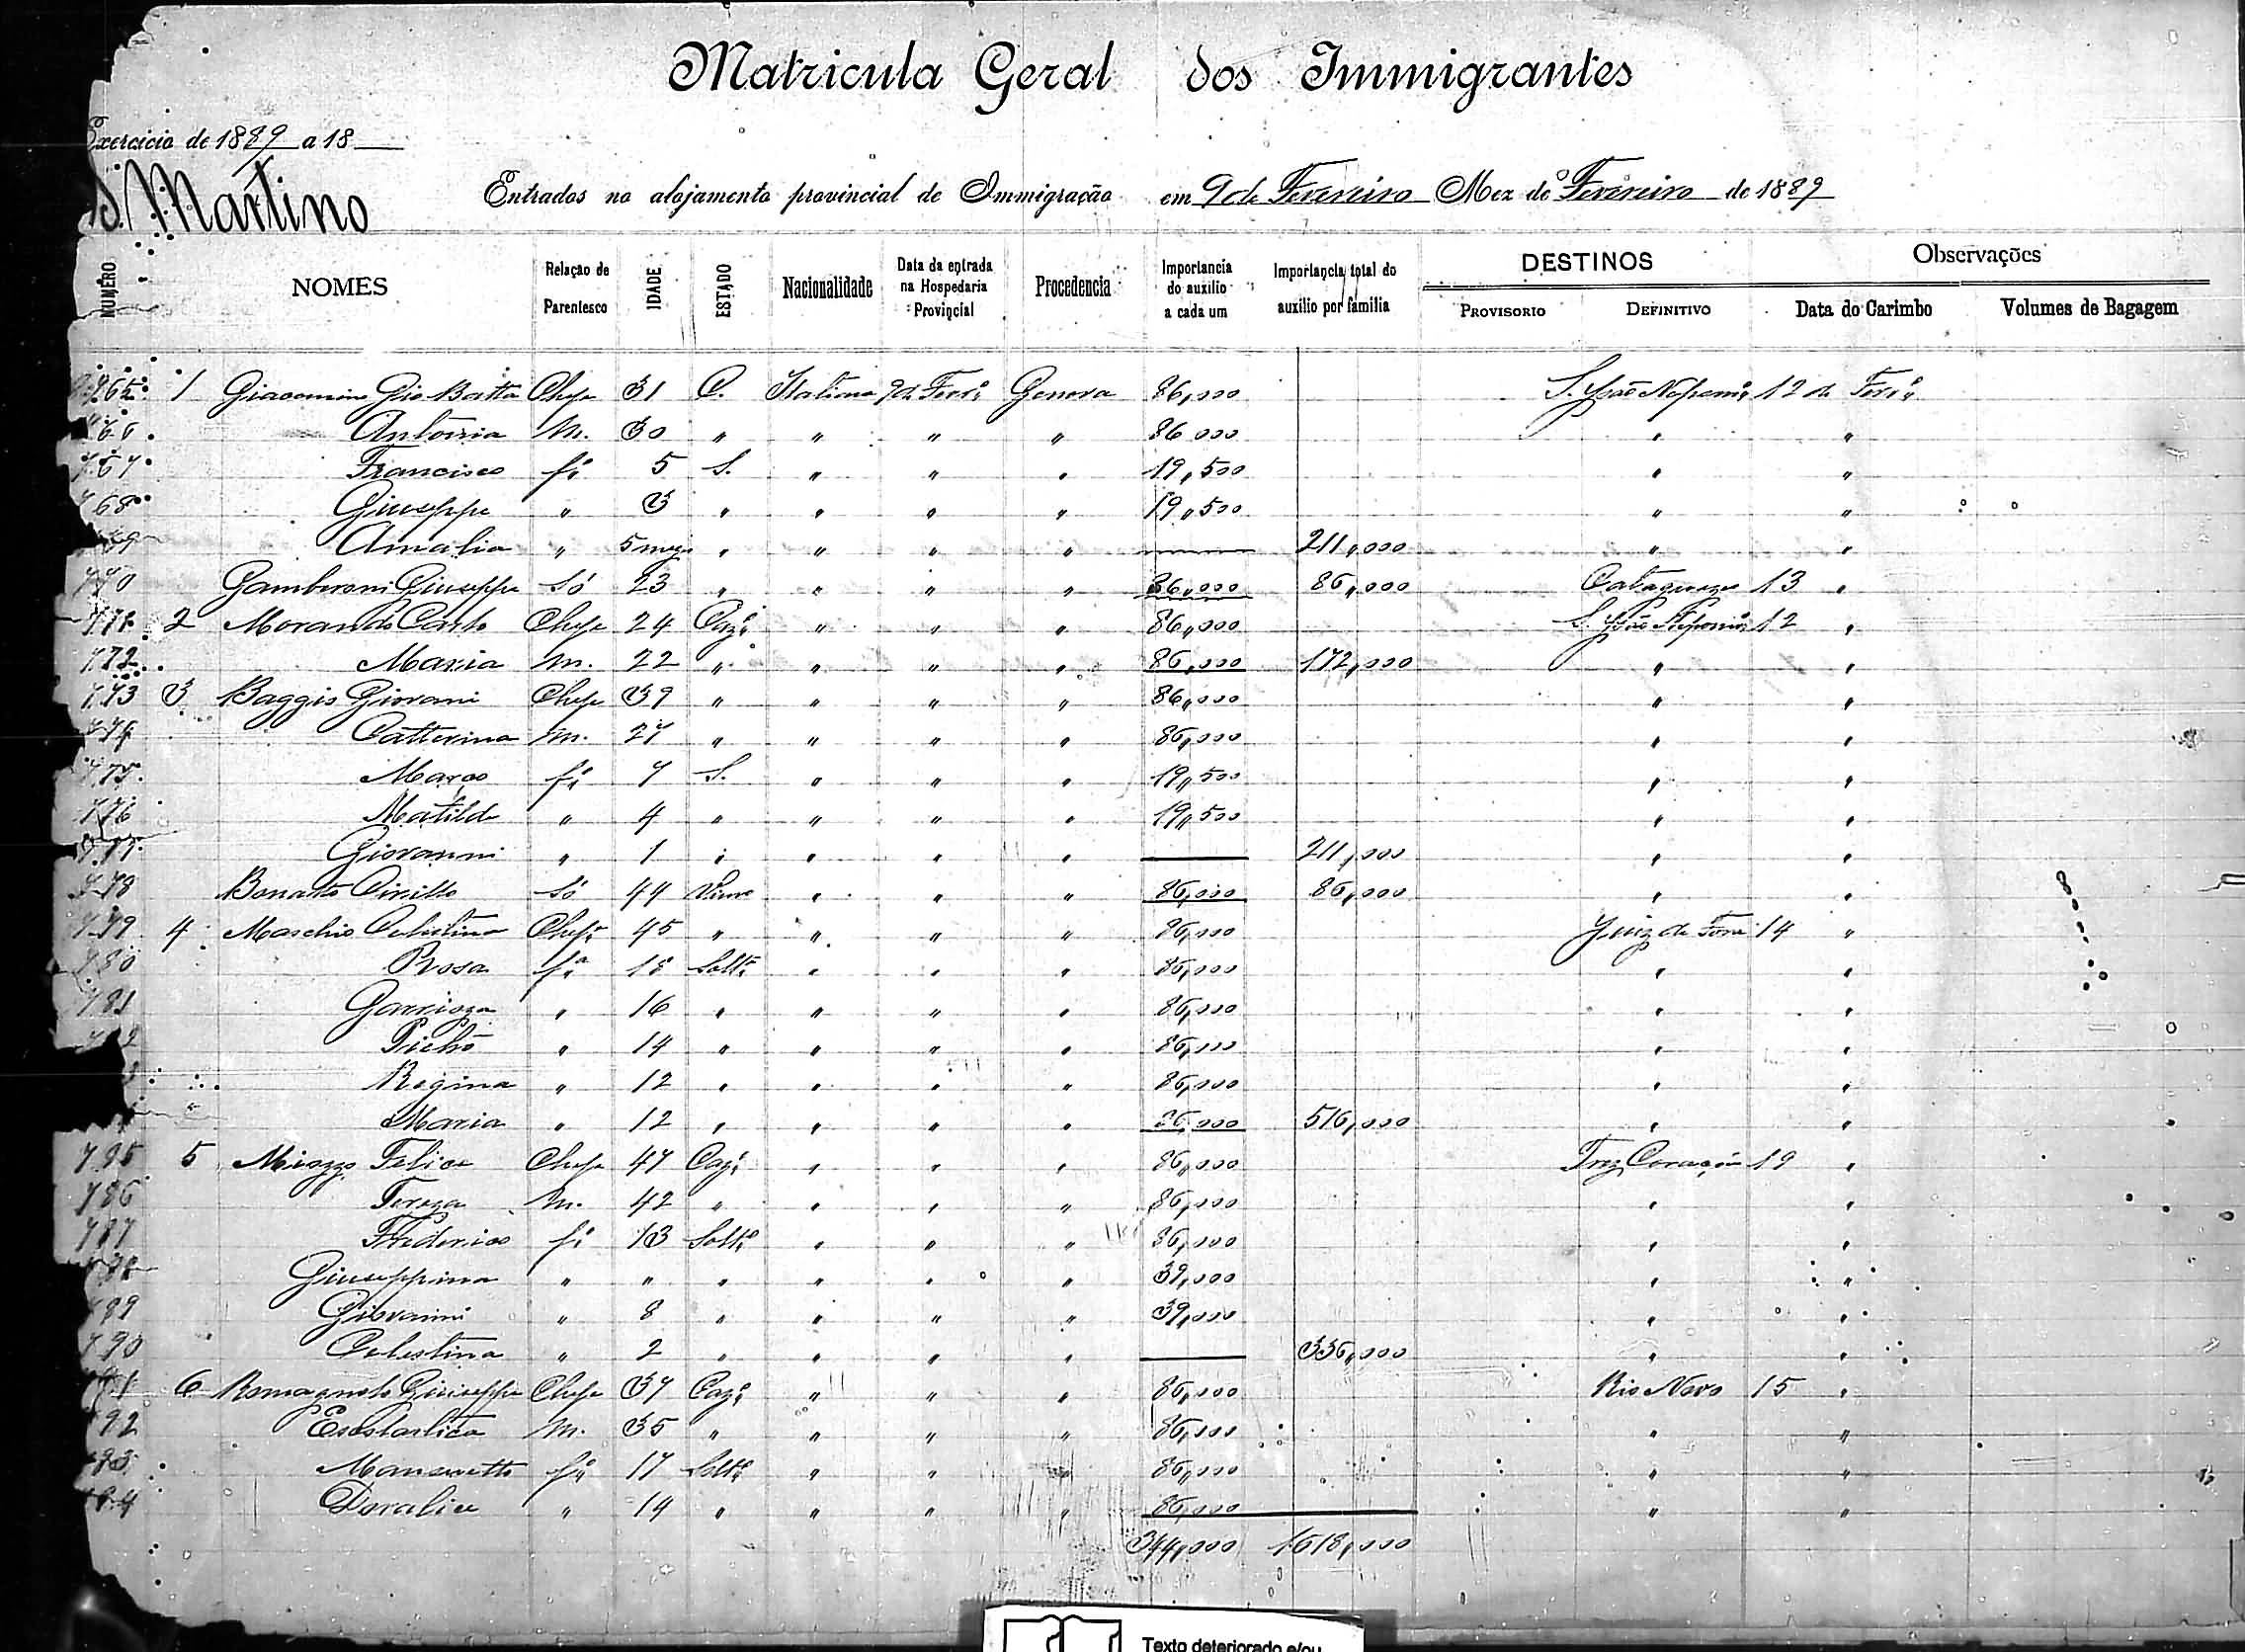 Matricula Geral dos Immigrantes
Exercicio de 1889 a 18
S. Martino
Entrados no alojamento provincial de Immigração em 9 de Fevereiro Mez de Fevereiro de 1889
NUMERO NOMES Relação de Parentesco IDADE ESTADO Nacionalidade Data da entrada na Hospedaria Provincial Procedencia Importancia do auxilio a cada um Importancia total do auxilio por familia DESTINOS PROVISORIO DEFINITIVO Observações Data do Carimbo Volumes de Bagagem
765 1 Giacomino Gio Batta Chefe 31 C. Italiana 9 de Fevro Genova 86,000 S. João Nepomo 12 de Fevro
766 Antonia M. 30 " " " " 86,000 " "
767 Francisco fo 5 S. " " " 19,500 " "
768 Giuseppe " 3 " " " " 19,500 " "
769 Amalia " 5 mezes " " " " — 211,000 " "
770 Gamberoni Giuseppe Só 23 " " " " 86,000 86,000 Cataguazes 13 "
771 2 Morando Carlo Chefe 24 Cazo " " " 86,000 S. João Nepomo 12 "
772 Maria M. 22 " " " " 86,000 172,000 " "
773 3 Baggio Giovani Chefe 39 " " " " 86,000 " "
774 Catterina M. 27 " " " " 86,000 " "
775 Marco fo 7 S. " " " 19,500 " "
776 Matilde " 4 " " " " 19,500 " "
777 Giovanni " 1 " " " " — 211,000 " "
778 Bonatto Cirillo Só 44 Viuvo " " " 86,000 86,000 " "
779 4 Maschio Celestina Chefe 45 " " " " 86,000 Juiz de Fora 14 "
780 Rosa fa 18 Solta " " " 86,000 " "
781 16 " " " " 86,000 " "
782 " 14 " " " " 86,000 " "
Regina " 12 " " " " 86,000 " "
Maria " 12 " " " " 86,000 516,000 " "
785 5 Miozzo Felice Chefe 47 Cazo " " " 86,000 Trez Corações 19 "
786 Tereza M. 42 " " " " 86,000 " "
787 Frederico fo 13 Solto " " " 86,000 " "
788 Giuseppina " " " " " " 39,000 " "
789 Giovanni " 8 " " " " 39,000 " "
790 Celestina " 2 " " " " — 336,000 " "
791 6 Romagnolo Giuseppe Chefe 37 Cazo " " " 86,000 Rio Novo 15 "
792 M. 35 " " " " 86,000 " "
793 fo 17 Solto " " " 86,000 " "
794 Doralice " 14 " " " " 86,000 " "
344,000 1618,000
Texto deteriorado e/ou